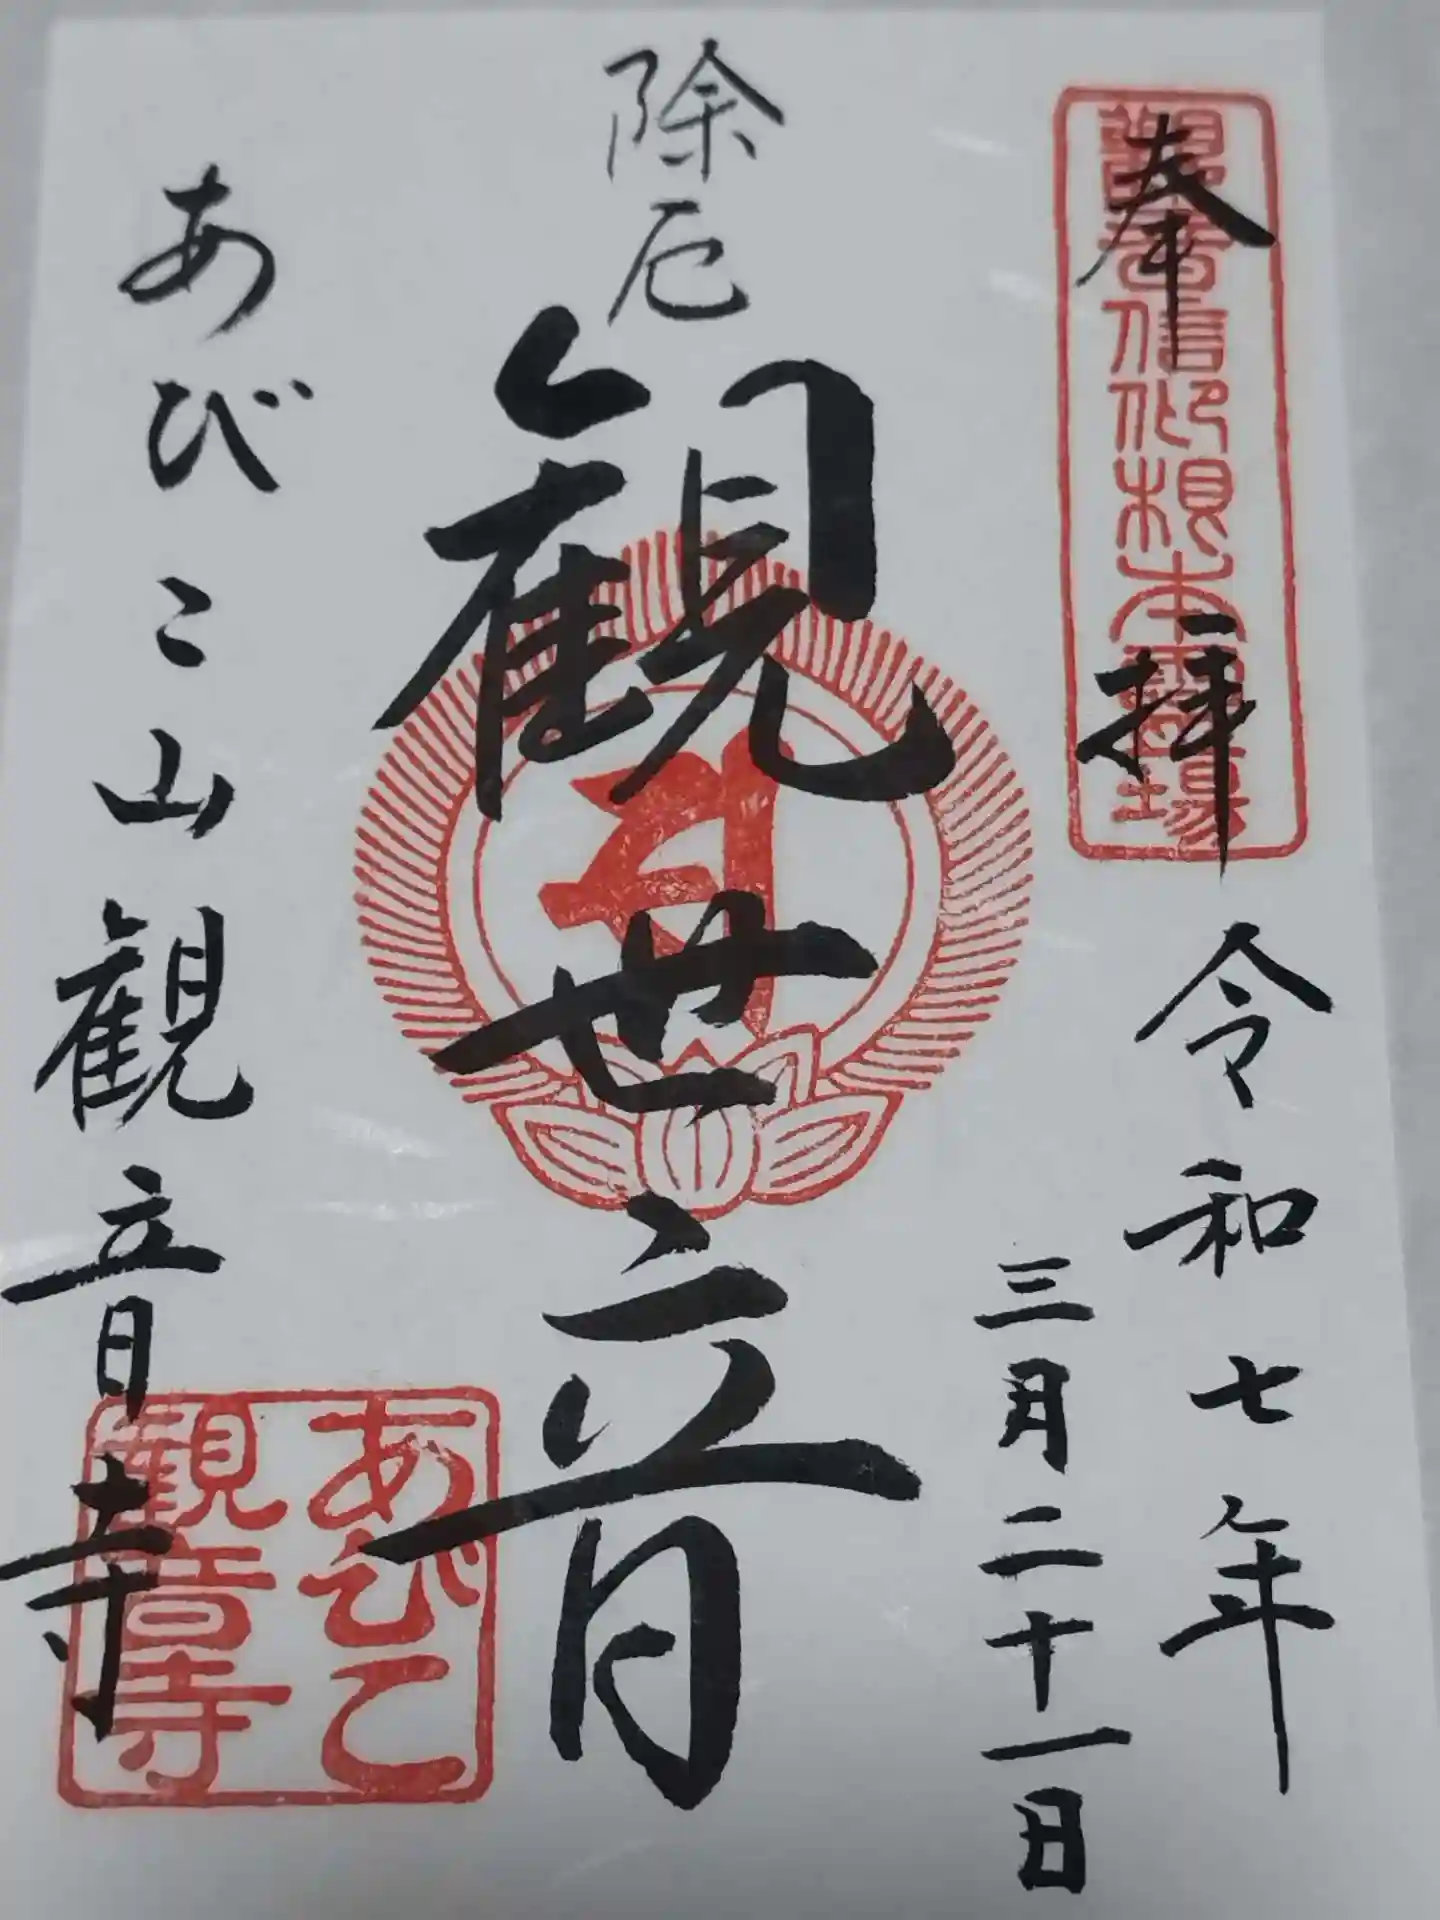 奉拝
令和七年
三月二十一日
除厄
観世音
あびこ山観音寺
観音信仰根本霊場
あびこ
観音寺